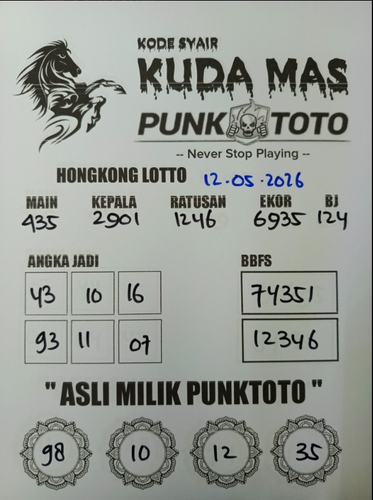 KODE SYAIR
KUDA MAS
PUNK TOTO
-- Never Stop Playing --
HONGKONG LOTTO 12.05.2026
MAIN KEPALA RATUSAN EKOR BJ
435 2901 1246 6935 124
ANGKA JADI BBFS
43 10 16 74351
93 11 07 12346
" ASLI MILIK PUNKTOTO "
98 10 12 35